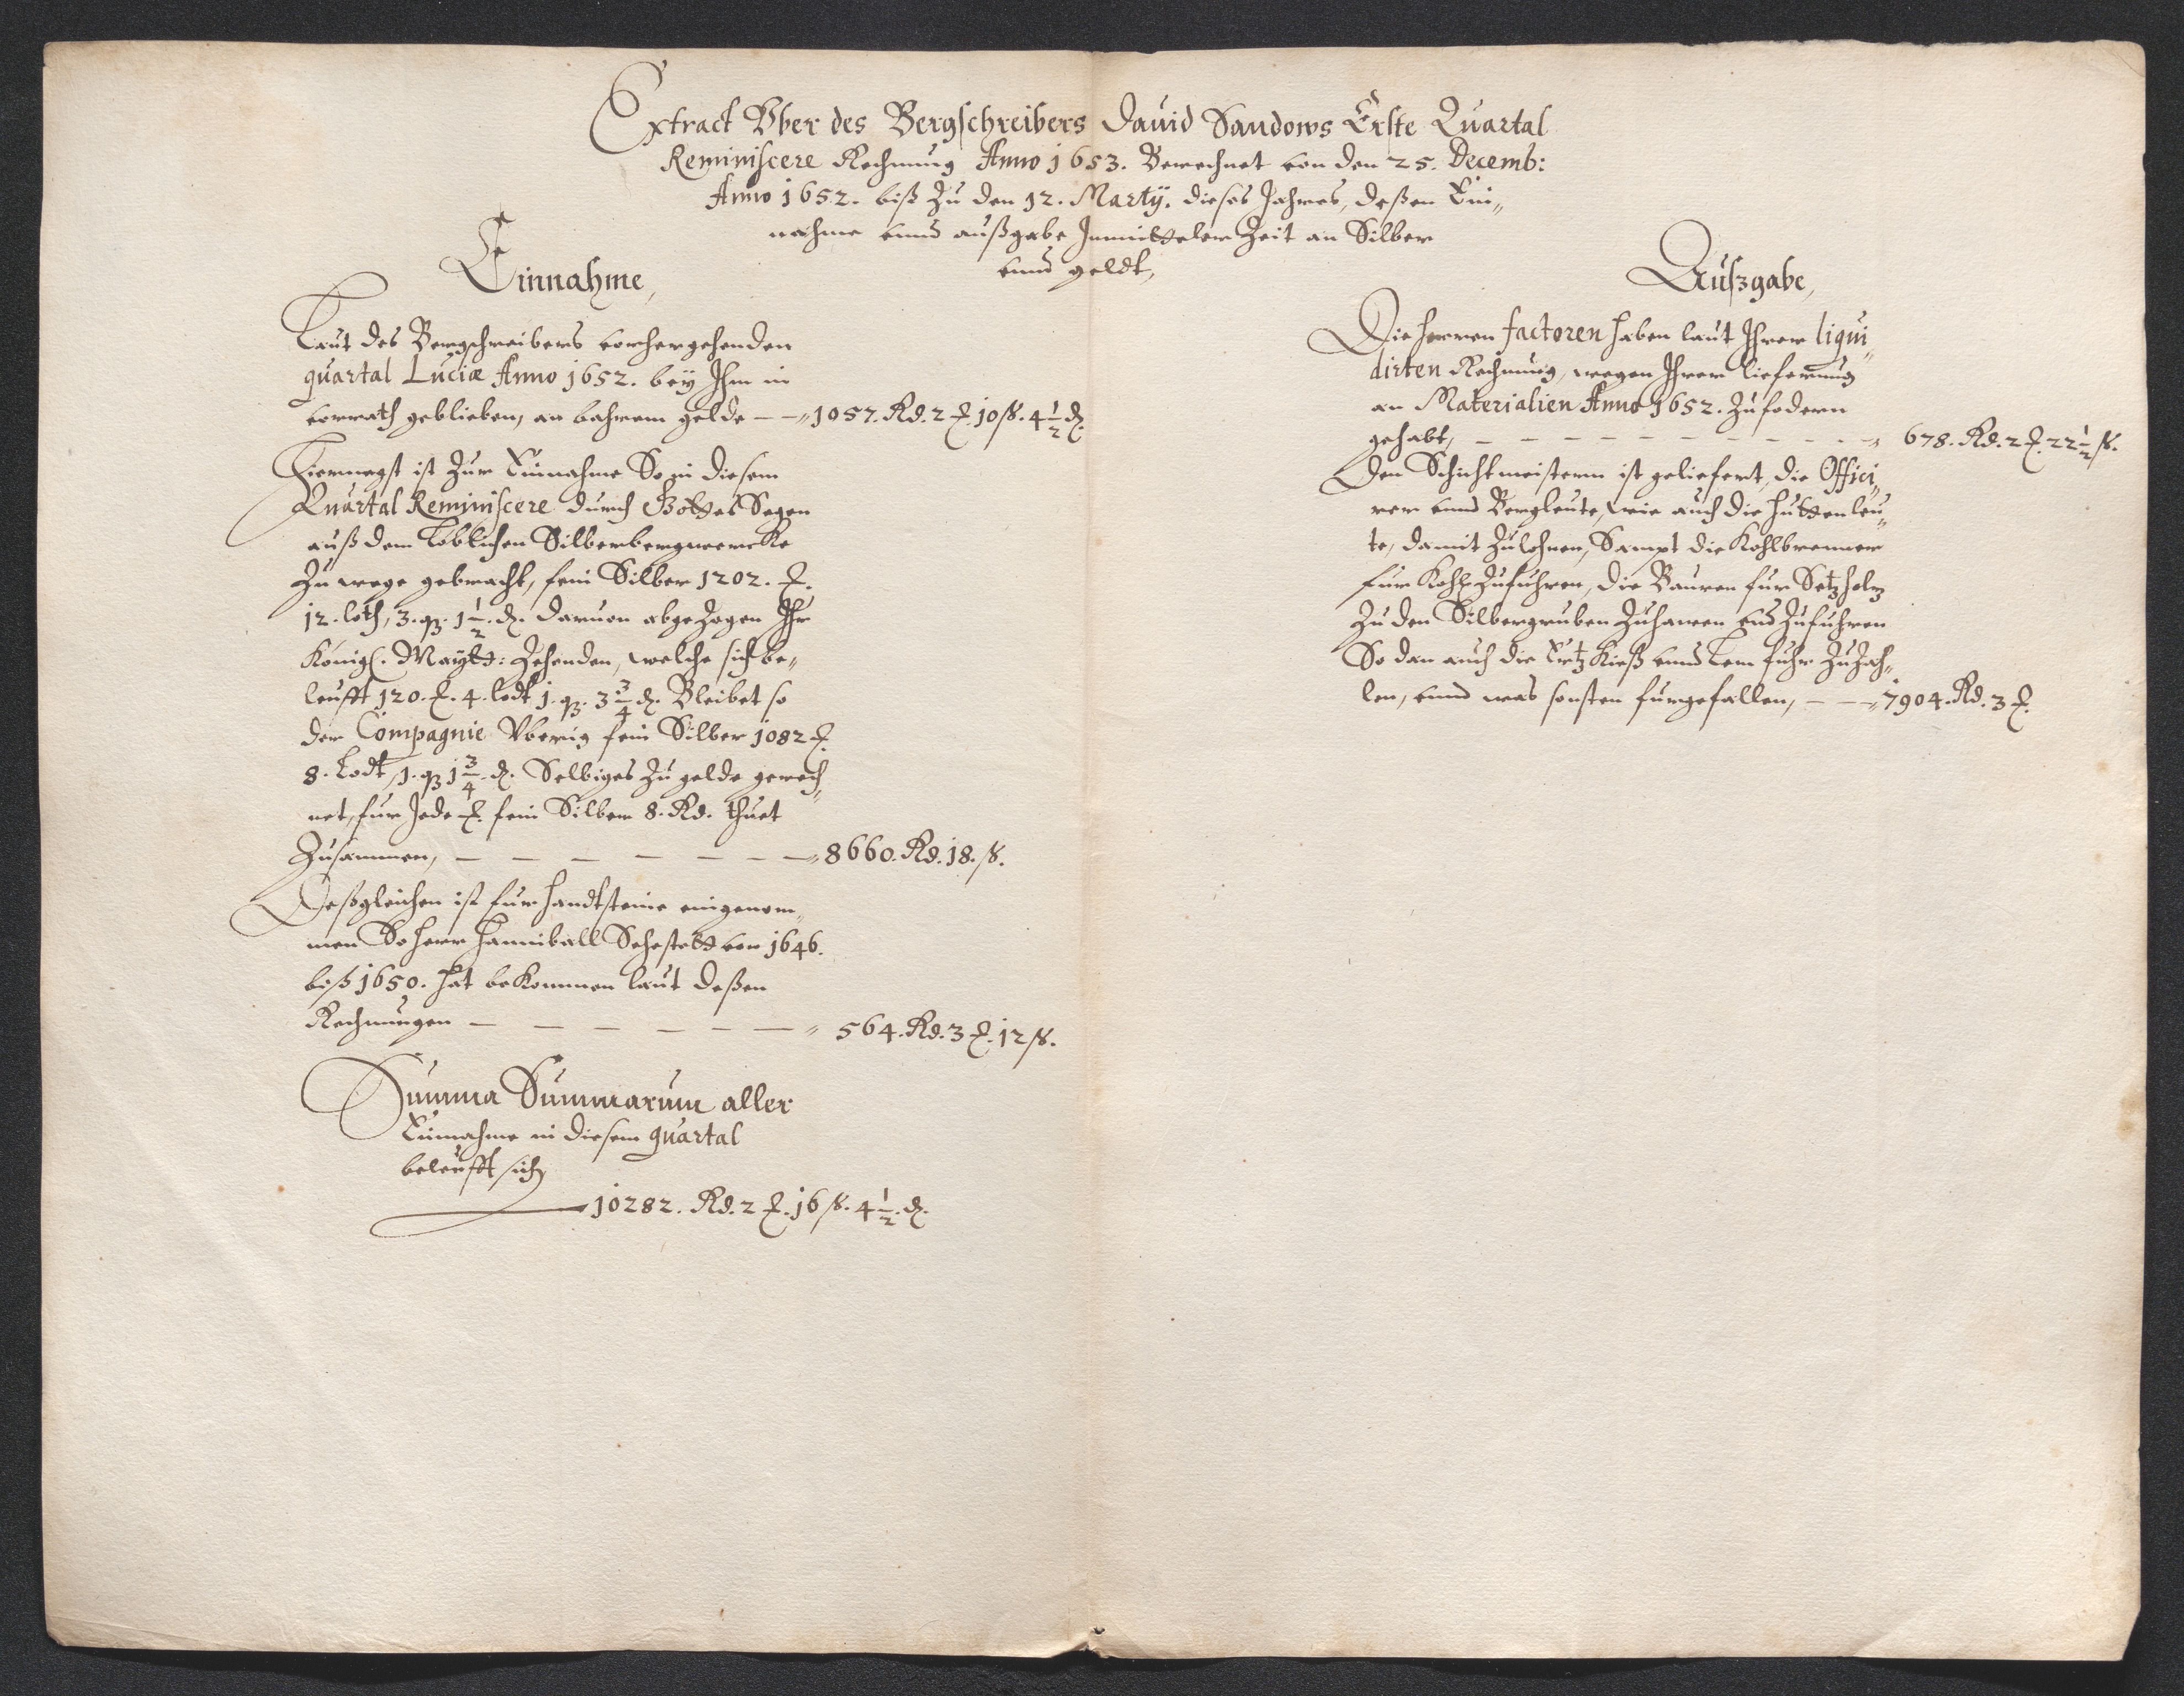 Extract Vber des Bergschreibers Dauid Sandows Erste Quartal
Reminiscere Rechnung Anno 1653. Berechnet von den 25. Decemb:
Anno 1652. biß zu den 12. Martÿ. dieses Jahres, deßen Ein„
nahme vnnd außgabe Inmitteler Zeit an Silber
vnnd geldt,
Einnahme,
Laut des Bergschreibers vorhergehenden
quartal Luciæ Anno 1652. beÿ Ihm in
vorrath geblieben, an bahrem gelde — — „ 1057. Rd. 2 ₰. 10 ß. 4 1/2 ₰.
Hiernegst ist zur Einnahme So in diesem
Quartal Reminiscere durch Gottes Segen
auß dem Löblichen Silberbergwercke
zu wege gebracht, fein Silber 1202. ₰.
12. loth, 3. q. 1 1/2 ₰. daruon abgezogen Ihr
Königl. Maytt: Zehenden, welche sich be„
leufft 120. ₰. 4. lodt 1. q. 3 3/4 ₰. Bleibet so
der Compagnie Vberig fein Silber 1082 ₰.
8. Lodt, 1. q 1 3/4 ₰. Selbiges zu gelde gerech„
net, fur Jede ₰. fein Silber 8. Rd. thuet
Zusammen, — — — — — — „ 8660. Rd. 18. ß.
Deßgleichen ist fur handtsteine eingenom„
men So herr Hanniball Sehestett von 1646.
biß 1650. hat bekommen laut deßen
Rechnungen — — — — — — „ 564. Rd. 3 ₰. 12 ß.
Summa Summarum aller
Einnahme in diesem quartal
beleufft sich
— 10282. Rd. 2 ₰. 16 ß. 4 1/2 ₰.
Außgabe,
Die herren factoren haben laut Ihrer liqui„
dirten Rechnung, wegen Ihrer lieferung
an Materialien Anno 1652. zu fodern
gehabt, — — — — — — — — „ 678. Rd. 2 ₰. 22 1/2 ß.
Den Schichtmeistern ist geliefert, die Offici„
rer vnnd Bergleute, wie auch die Huttenleu„
te, damit zulohnen, Sampt die Kohlbrenner
fur Kohl zufuhren, die Bauren fur Setzholtz
zu den Silbergruben zuhawen vnd zufuhren
So dan auch die Ertz Kieß vnnd Lem fuhr zuzah„
len, vnnd was sonsten furgefallen, — — „ 7904. Rd. 3 ₰.